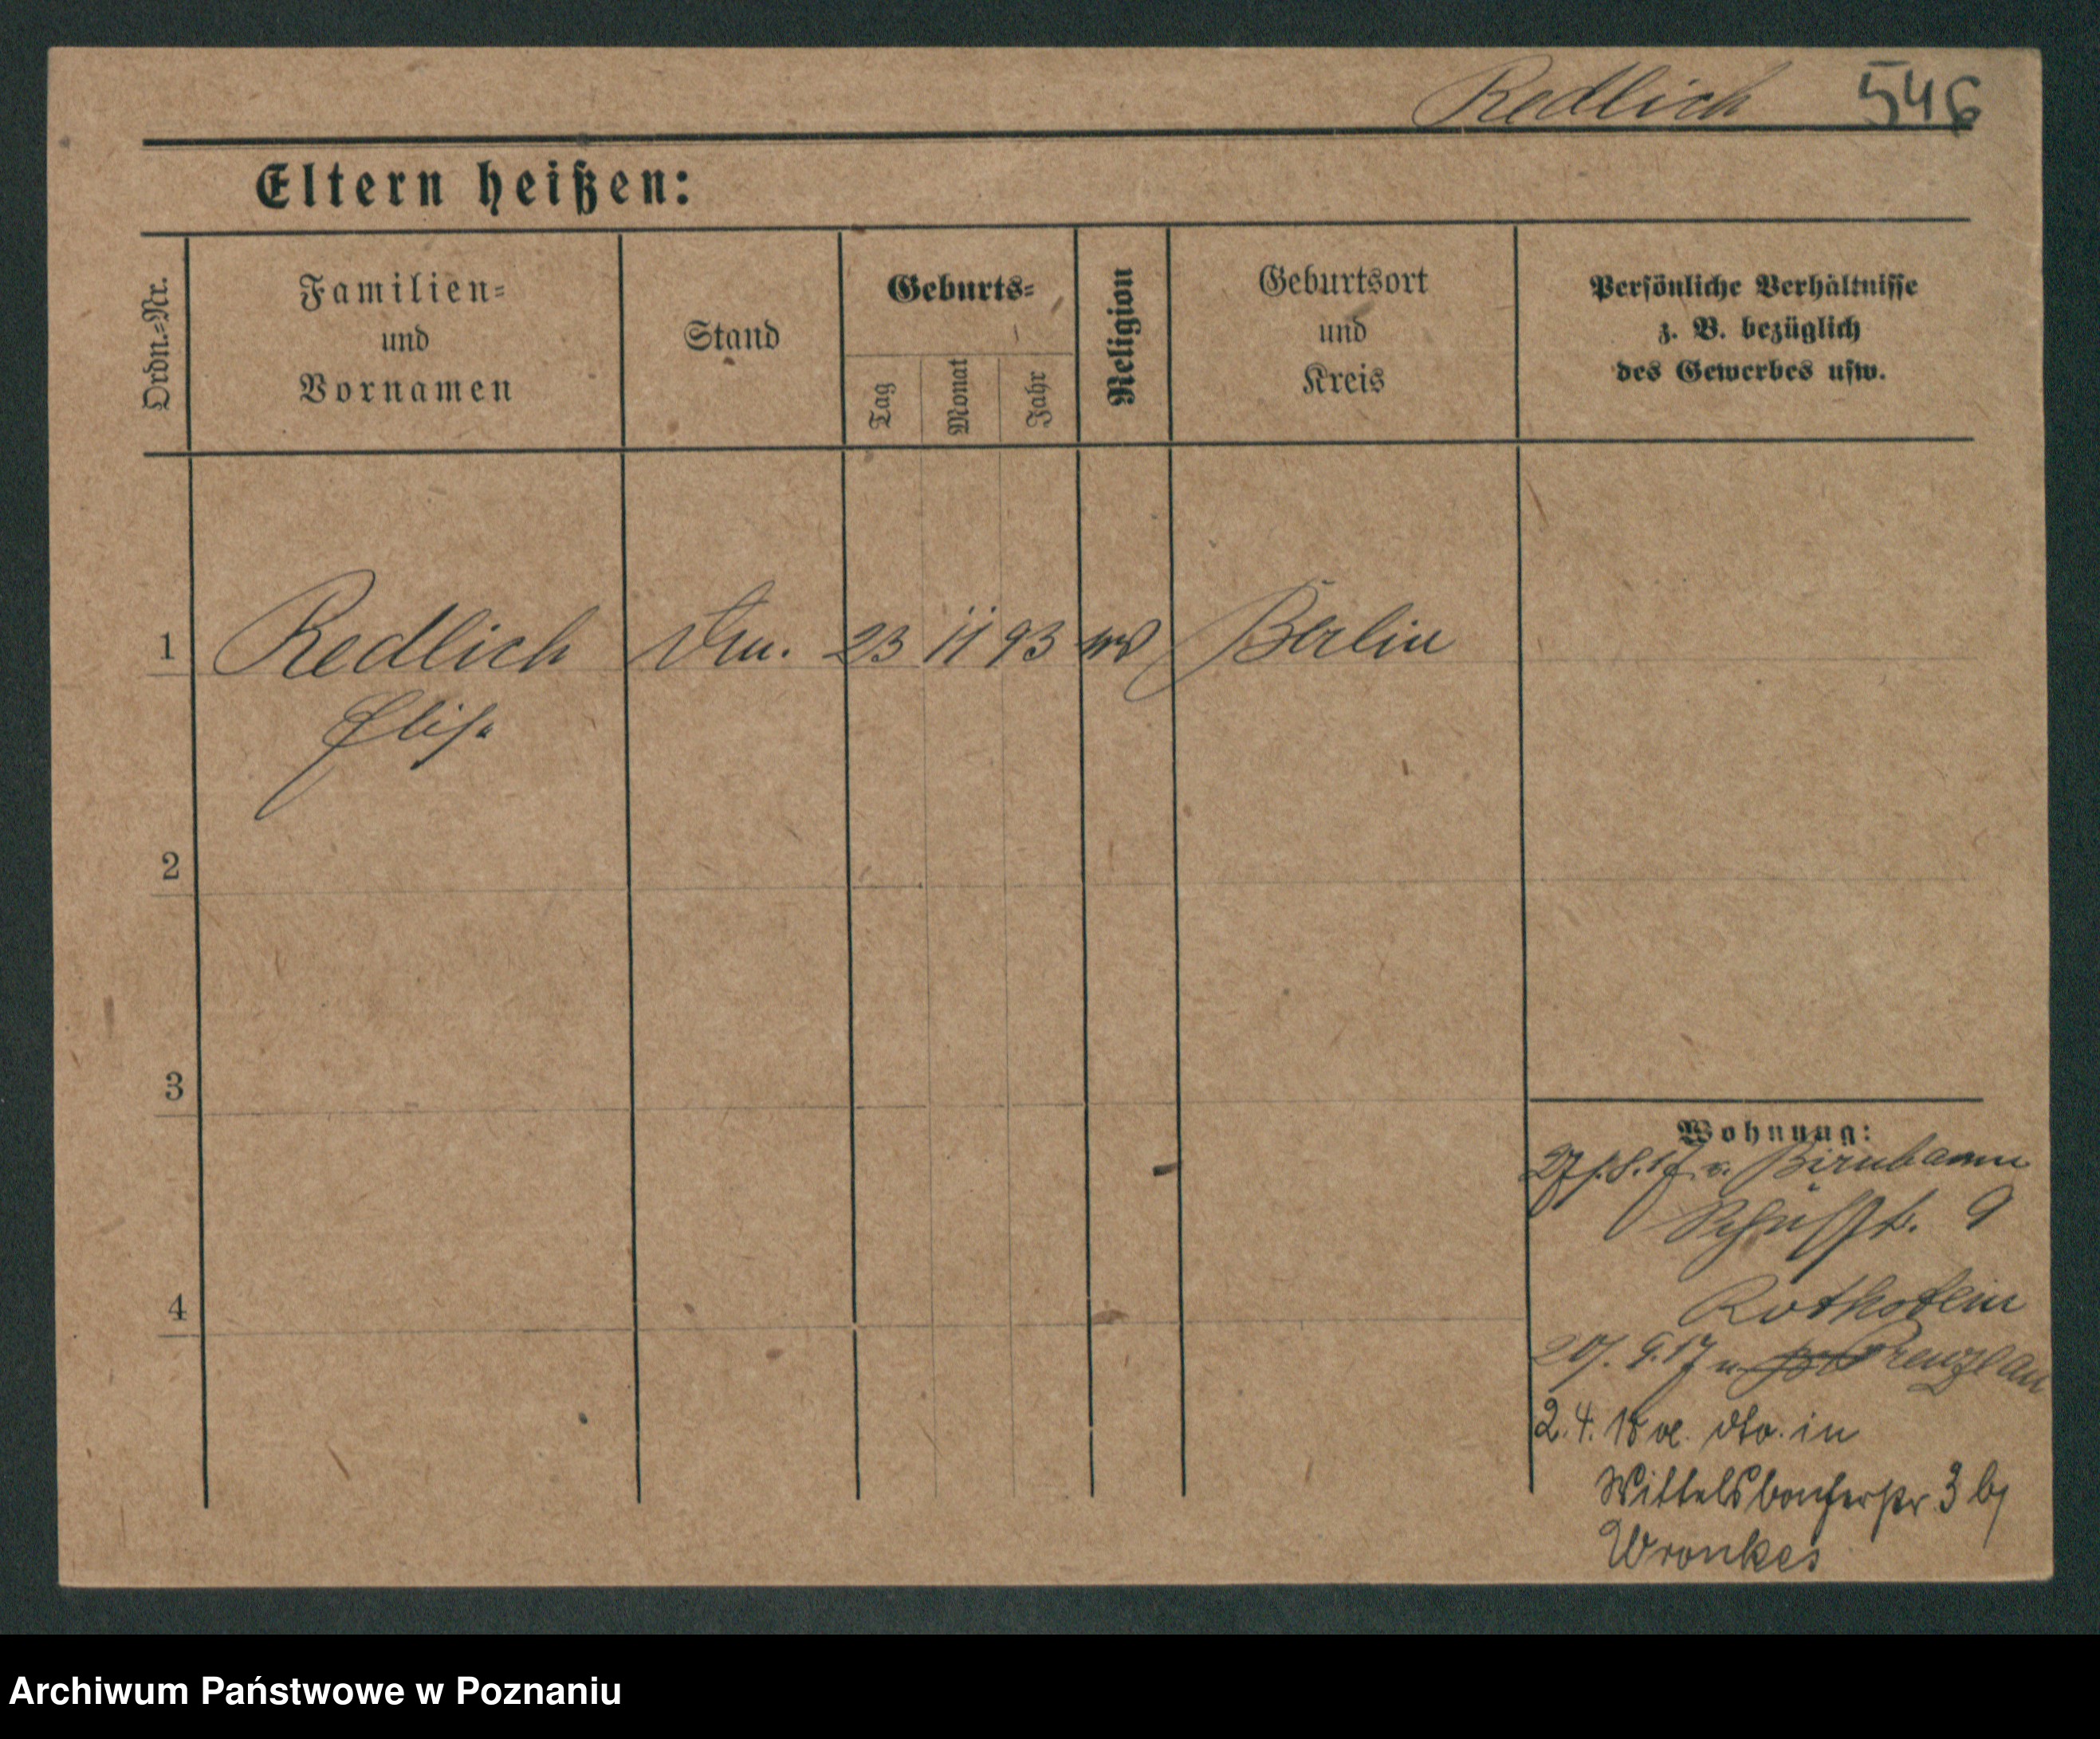 Redlich 546
Eltern heißen:
Ordn.=Nr.
Familien=
und
Vornamen
Stand
Geburts=
Tag
Monat
Jahr
Religion
Geburtsort
und
Kreis
Persönliche Verhältnisse
z. B. bezüglich
des Gewerbes usw.
1 Redlich 23 11 93 Berlin
2
3
4
Wohnung:
27. 8. 17 v. Birnbaum
9
Rothstein
9. 17 n. Prenzlau
2. 4. 18 dto. in
Wittelsbacherstr. 3 b/
Wronkes
Archiwum Państwowe w Poznaniu